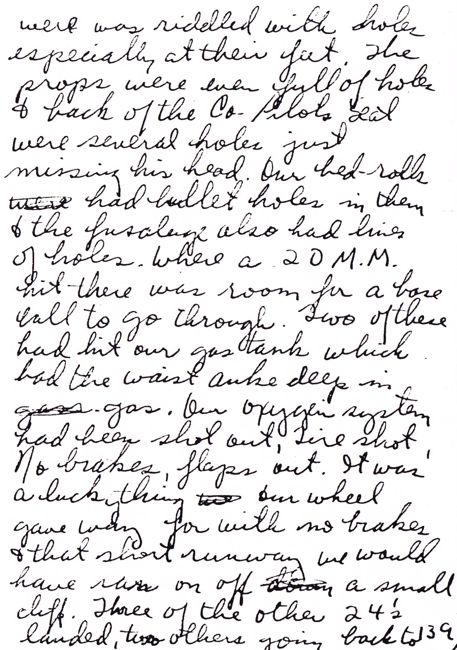 were was riddled with holes
especially at their feet. The
props were even full of holes
& back of the Co-Pilots seat
were several holes just
missing his head. Our bed-rolls
were had bullet holes in them
& the fusalage also had lines
of holes. Where a 20 M.M.
hit there was room for a base
ball to go through. Two of these
had hit our gas tank which
had the waist anke deep in
gass gas. Our oxygen system
had been shot out, tire shot,
No brakes, flaps out. It was
a luck thing our wheel
gave way for with no brakes
& that short runway we would
have ran on off down a small
cliff. Three of the other 24's
landed, two others going back to 139,